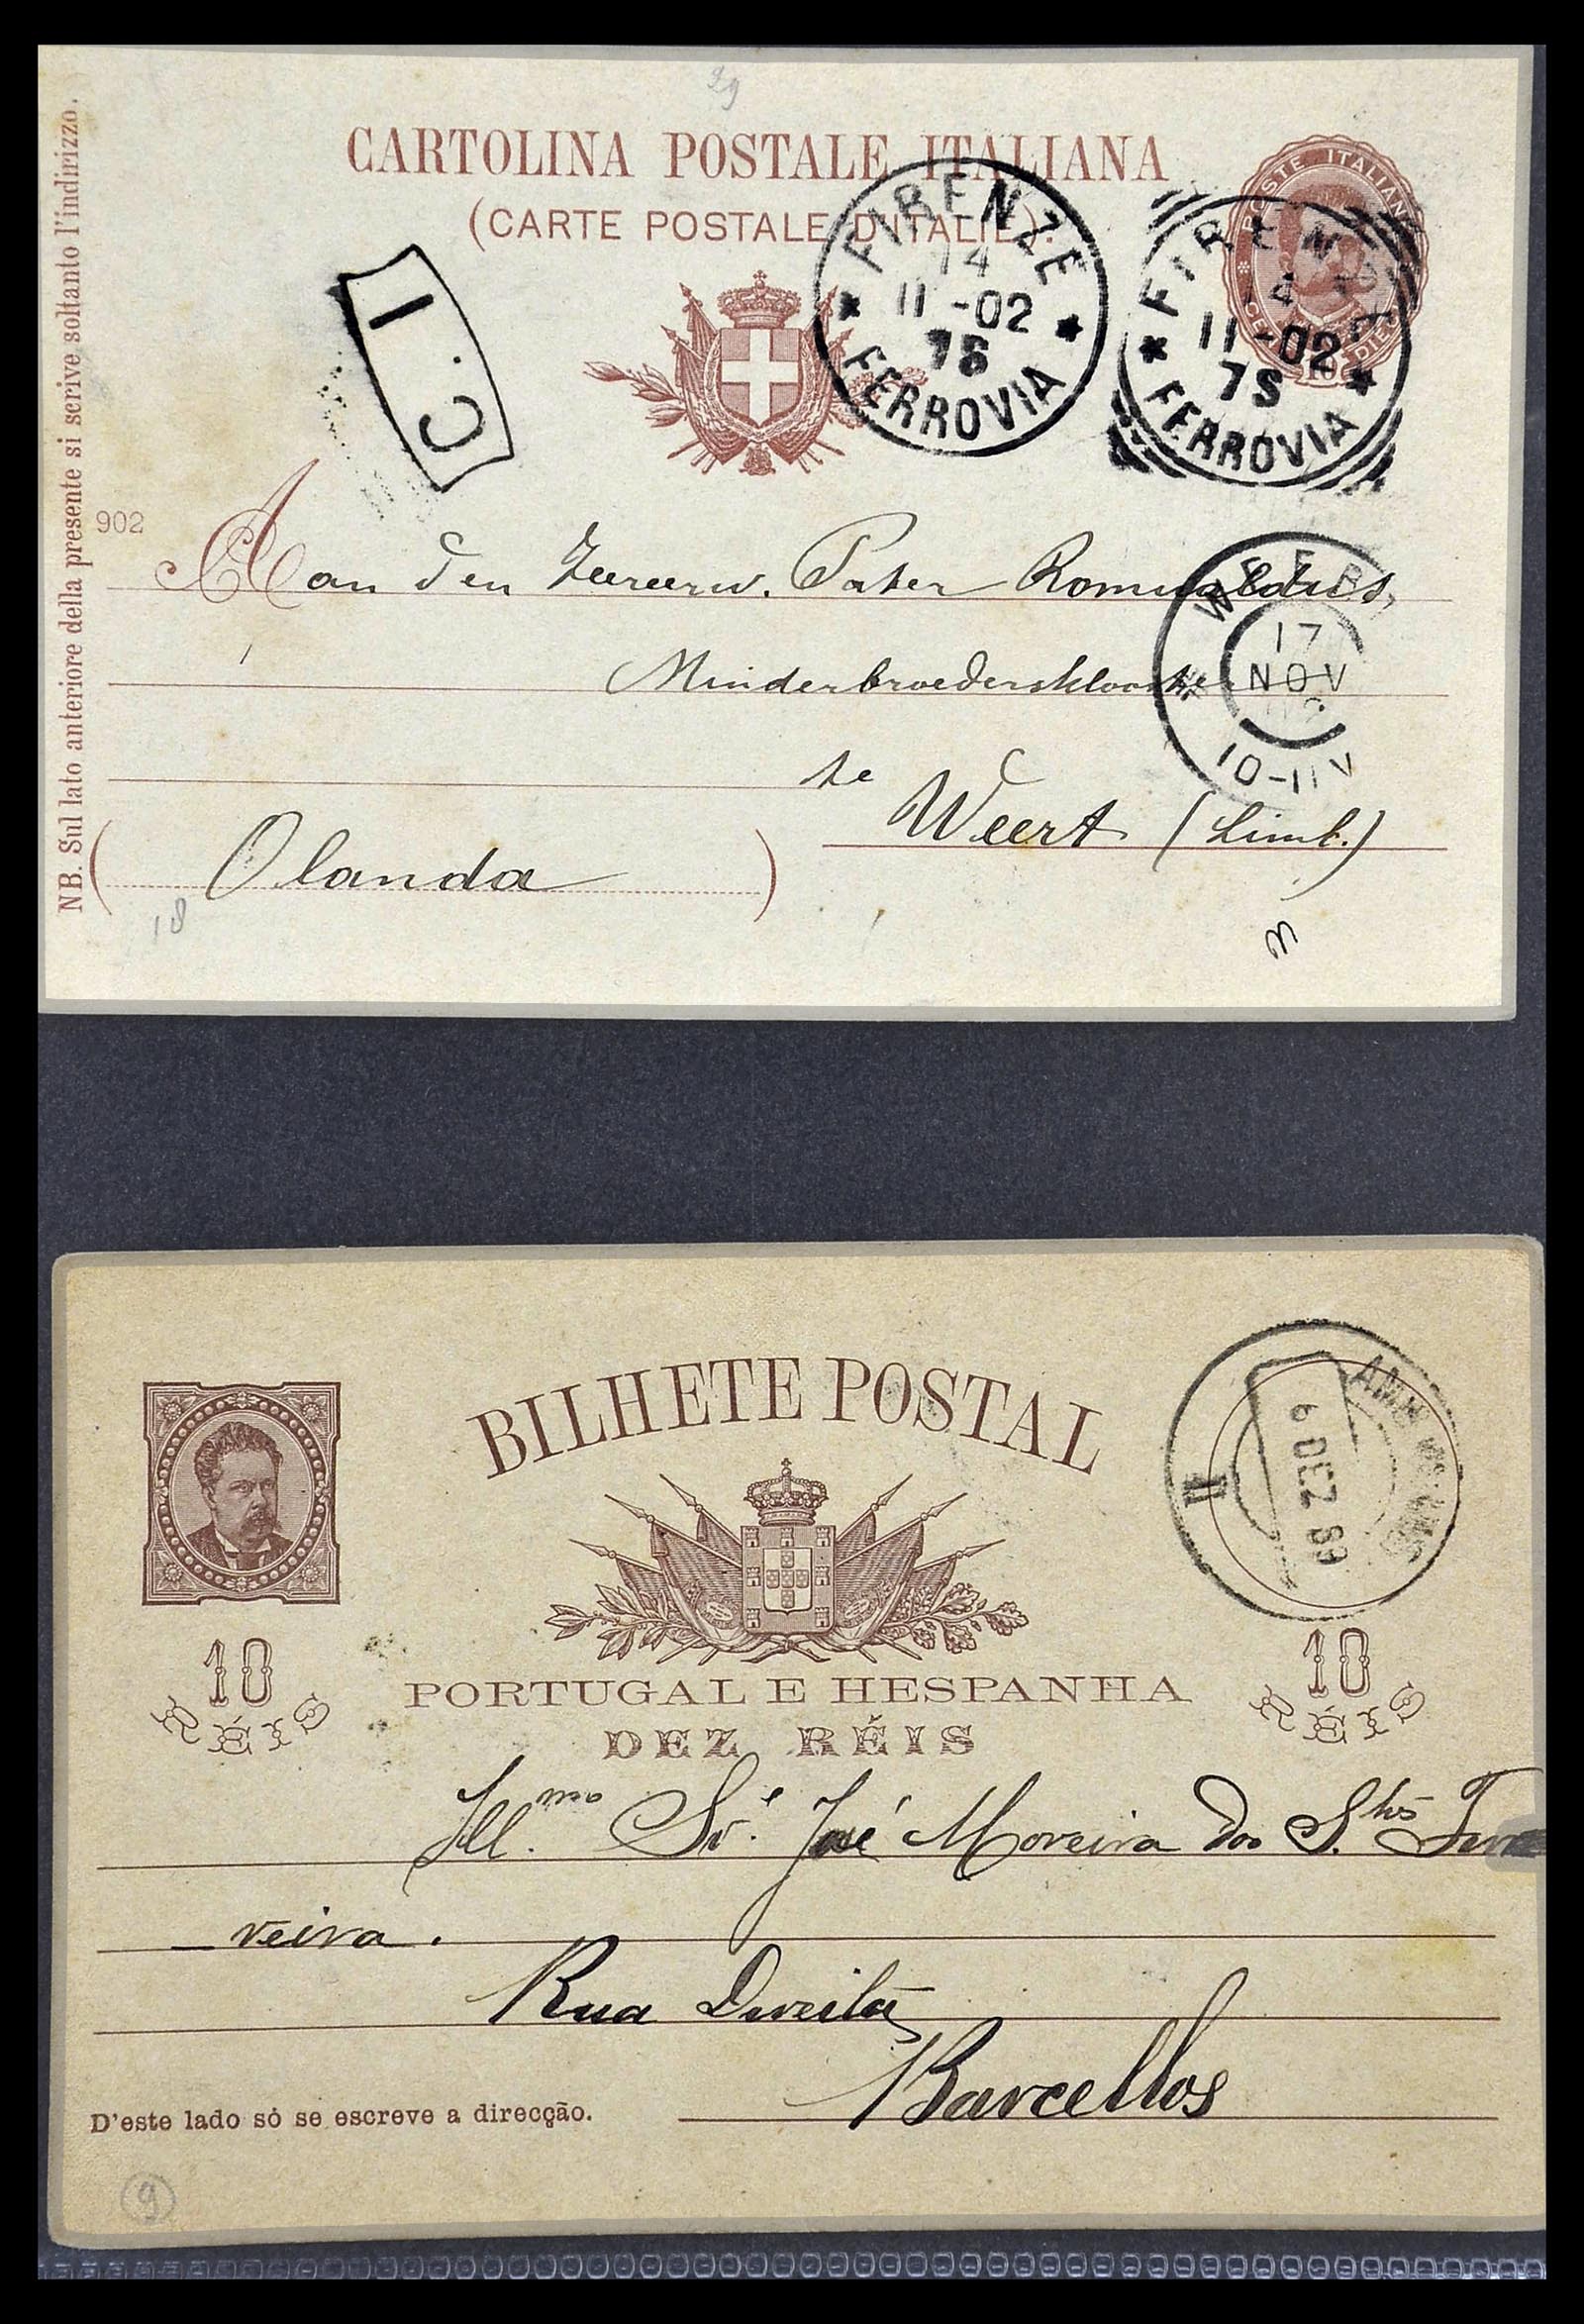 29
CARTOLINA POSTALE ITALIANA
(CARTE POSTALE D'ITALIE).
POSTE ITALIANE
FIRENZE
14
11-02
7S
FERROVIA
FIRENZE
14
11-02
7S
FERROVIA
I.C
NB. Sul lato anteriore della presente si scrive soltanto l'indirizzo.
902
Aan den Zeereerw. Pater Romualdus,
Minderbroedersklooster
te
Weert (Limb.)
(Olanda)
WEERT
17
NOV
10-11V
18
3
BILHETE POSTAL
AMB
6 DEZ 89
II
10
RÉIS
10
RÉIS
PORTUGAL E HESPANHA
DEZ RÉIS
Ill.mo Sr. José Moreira dos S.tos
veira.
Rua Direita
Barcellos
D'este lado só se escreve a direcção.
9